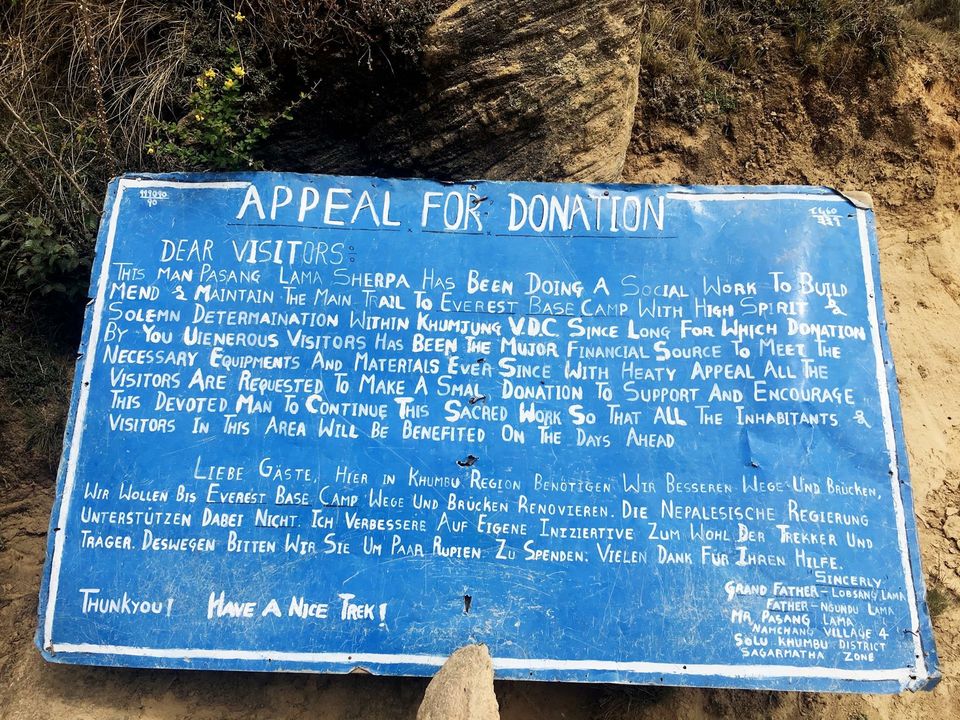 APPEAL FOR DONATION
DEAR VISITORS:
THIS MAN PASANG LAMA SHERPA HAS BEEN DOING A SOCIAL WORK TO BUILD
MEND & MAINTAIN THE MAIN TRAIL TO EVEREST BASE CAMP WITH HIGH SPIRIT &
SOLEMN DETERMAINATION WITHIN KHUMJUNG V.D.C SINCE LONG FOR WHICH DONATION
BY YOU UIENEROUS VISITORS HAS BEEN THE MUJOR FINANCIAL SOURCE TO MEET THE
NECESSARY EQUIPMENTS AND MATERIALS EVER SINCE WITH HEATY APPEAL ALL THE
VISITORS ARE REQUESTED TO MAKE A SMAL DONATION TO SUPPORT AND ENCOURAGE
THIS DEVOTED MAN TO CONTINUE THIS SACRED WORK SO THAT ALL THE INHABITANTS &
VISITORS IN THIS AREA WILL BE BENEFITED ON THE DAYS AHEAD
LIEBE GÄSTE, HIER IN KHUMBU REGION BENÖTIGEN WIR BESSEREN WEGE UND BRÜCKEN,
WIR WOLLEN BIS EVEREST BASE CAMP WEGE UND BRÜCKEN RENOVIEREN. DIE NEPALESISCHE REGIERUNG
UNTERSTÜTZEN DABEI NICHT. ICH VERBESSERE AUF EIGENE INIZIERTIVE ZUM WOHL DER TREKKER UND
TRÄGER. DESWEGEN BITTEN WIR SIE UM PAAR RUPIEN ZU SPENDEN. VIELEN DANK FÜR IHREN HILFE.
SINCERLY
GRAND FATHER - LOBSANG LAMA
FATHER - NGUNDU LAMA
MR. PASANG LAMA
NAMCHANG VILLAGE 4
SOLU KHUMBU DISTRICT
SAGARMATHA ZONE
THUNKYOU! HAVE A NICE TREK!